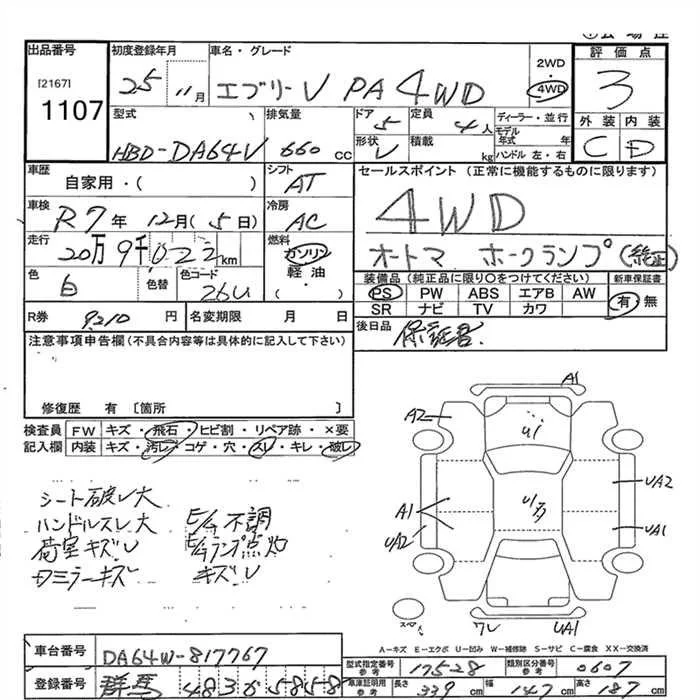 出品番号
[2167]
1107
初度登録年月
25 11月
車名・グレード
エブリーV PA 4WD
2WD
・
4WD
評価点
3
外装 内装
C D
型式
HBD-DA64V
排気量
660 cc
ドア
5
定員
4人
形状
V
積載
kg
ディーラー・並行
モデル
年式 年
ハンドル 左・右
車歴
自家用・( )
シフト
AT
車検
R7年 12月(5日)
冷房
AC
走行
20万9千022km
燃料
ガソリン
軽油・
( )
色
白
色替
色コード
26U
セールスポイント (正常に機能するものに限ります)
4WD
オートマ ホークランプ(純正)
装備品 (純正品に限り○をつけてください)
PS PW ABS エアB AW
SR ナビ TV カワ
新車保証書
有・無
R券 9210 円
名変期限 月 日
後日品
保証書
注意事項申告欄(不具合内容等は具体的に記入して下さい)
修復歴 有 [箇所 ]
検査員
記入欄
FW キズ・飛石・ヒビ割・リペア跡・×要
内装 キズ・汚レ・コゲ・穴・スレ・キレ・破レ
シート破レ大
ハンドルスレ大
荷室キズU
Rミラーキズ
E/G不調
E/Gランプ点灯
キズU
A1
A2
U1
UA2
A1
UA2
UA1
ワレ
UA1
A-キズ E-エクボ U-凹み W-補修跡 S-サビ C-腐食 XX-交換済
車台番号
DA64W-817767
登録番号
群馬 483 る 5858
型式指定番号
参考
17528
類別区分番号
参考
0607
車庫証明用
参考
長さ
339 cm
幅
147 cm
高さ
187 cm